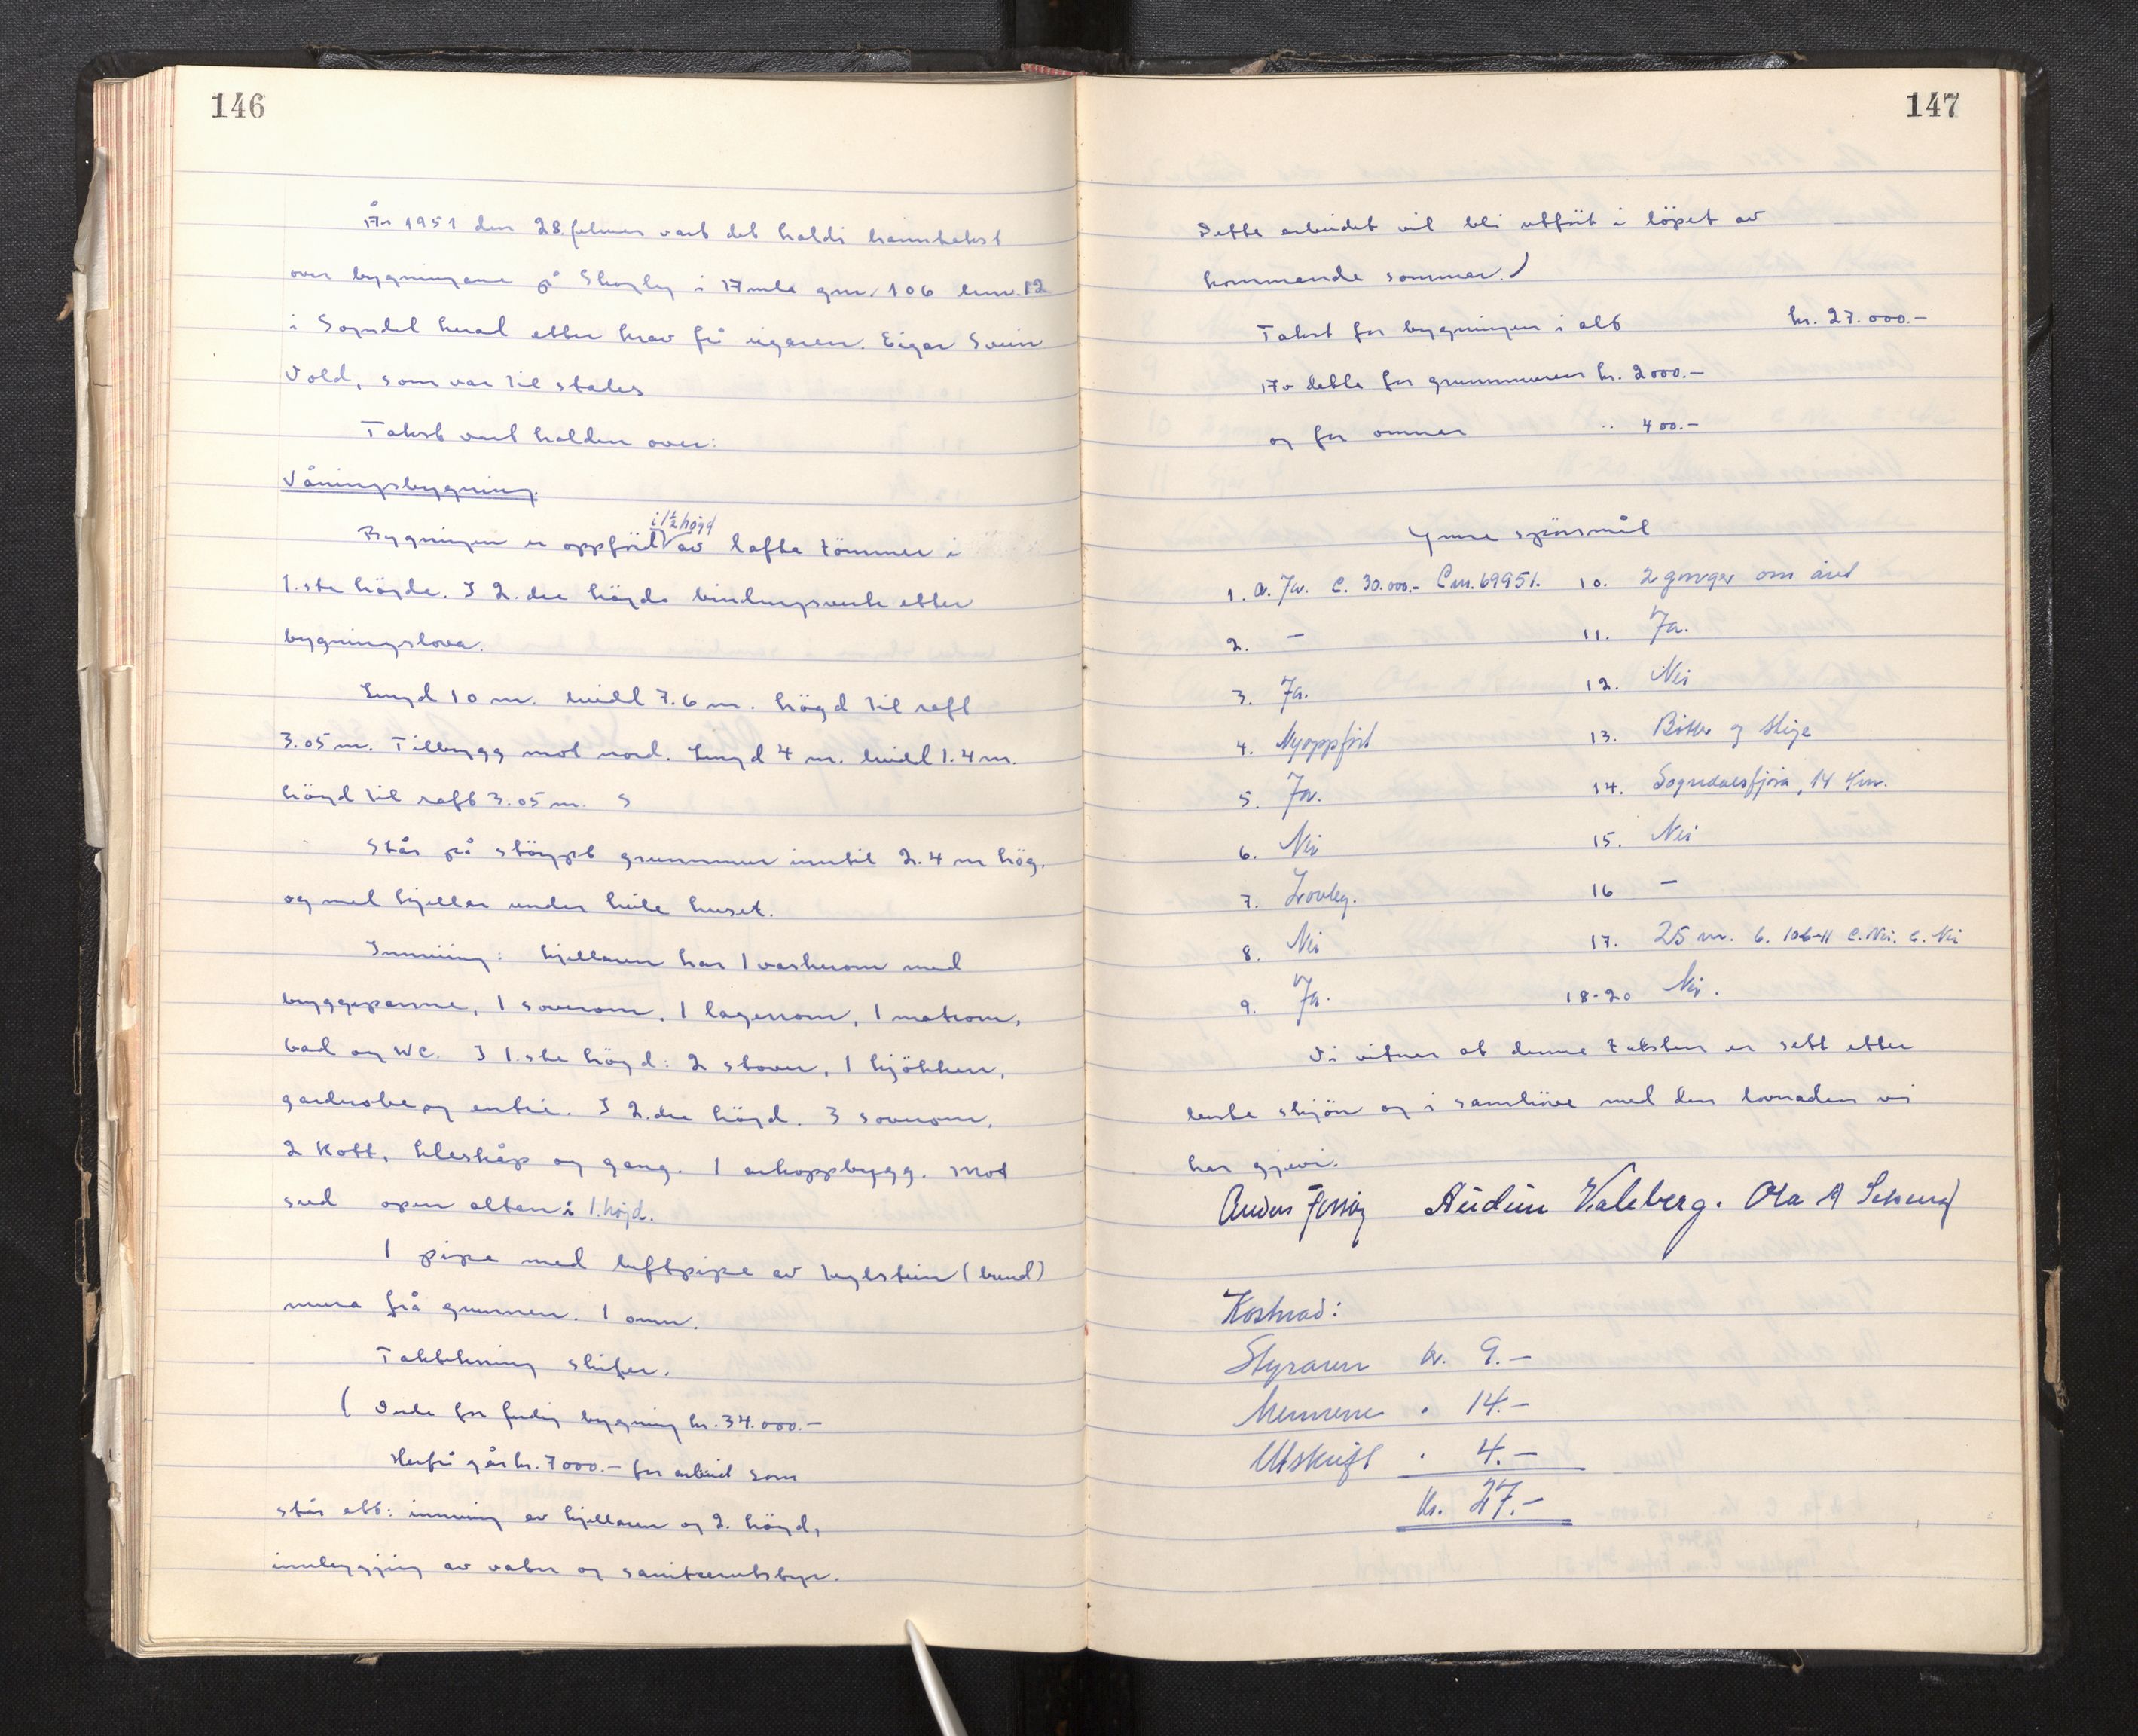 146
År 1951 den 28. februar vart det haldi branntakst
over bygningane på Skogly i Amla gnr. 106 bnr. 12
i Sogndal herad etter krav frå eigaren. Eigar Svein
Vold, som var til stades
Takst vart halden over:
Våningsbygning.
i 1½ høgd
Bygningen er oppfört av lafta tömmer i
1.ste högde. I 2. dre högde bindingsverk etter
bygningslova.
Lengd 10 m. breidd 7.6 m. högd til raft
3.05 m. Tilbygg mot nord. Lengd 4 m. breidd 1.4 m.
högd til raft 3.05 m.
Står på stöypt grunnmur inntil 2.4 m hög.
og med kjellar under heile huset.
Innreiing: kjellaren har 1 vaskerom med
bryggepanne, 1 soverom, 1 lagerrom, 1 matrom,
bad og WC. I 1.ste högd: 2 stover, 1 kjökken,
garderobe og entré. I 2.dre högd. 3 soverom,
2 Kott, kleskåp og gang. 1 arkoppbygg. mot
sud open altan i 1. högd.
1 pipe med luftpipe av teglstein (brend)
mura frå grunnen. 1 omn.
Taktekning skifer.
( Verde for ferdig bygning kr. 34.000.–
Herfrå går kr. 7000.– for arbeid som
står att: innreiing av kjellaren og 2. högd,
innleggjing av vatn og sanitærutstyr.
147
Dette arbeidet vil bli utfört i löpet av
kommande sommar.)
Takst for bygningen i alt kr. 27.000.–
Av dette for grunnmuren kr. 2000.–
og for omnar " 400.–
Ymse spörsmål
1. a. Ja. c. 30.000.– C nr. 69951. 10. 2 gonger om året
2. – 11. Ja.
3. Ja. 12. Nei
4. Nyoppfört 13. Bötter og stige
5. Ja. 14. Sogndalsfjöra, 14 km.
6. Nei 15. Nei
7. Lovleg. 16 –
8. Nei 17. 25 m. b. 106-11 c. Nei. e. Nei
9. Ja. 18-20 Nei.
Vi vitnar at denne taksten er sett etter
beste skjön og i samhöve med den lovnaden vi
har gjevi.
Audun Kaleberg. Ola A
Kostnad:
Styraren kr. 9.–
Mennene " 14.–
Utskrift " 4.–
kr. 27.–